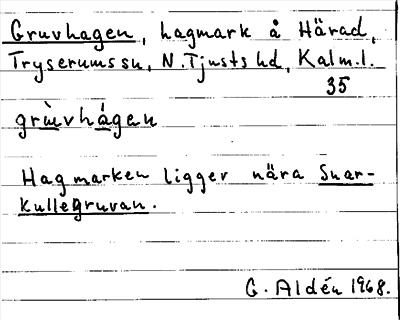 Gruvhagen, hagmark å Härad,
Tryserums sn, N. Tjusts hd, Kalm.l.
35
grùvhágen
Hagmarken ligger nära Snar-
kullegruvan.
G. Aldén 1968.